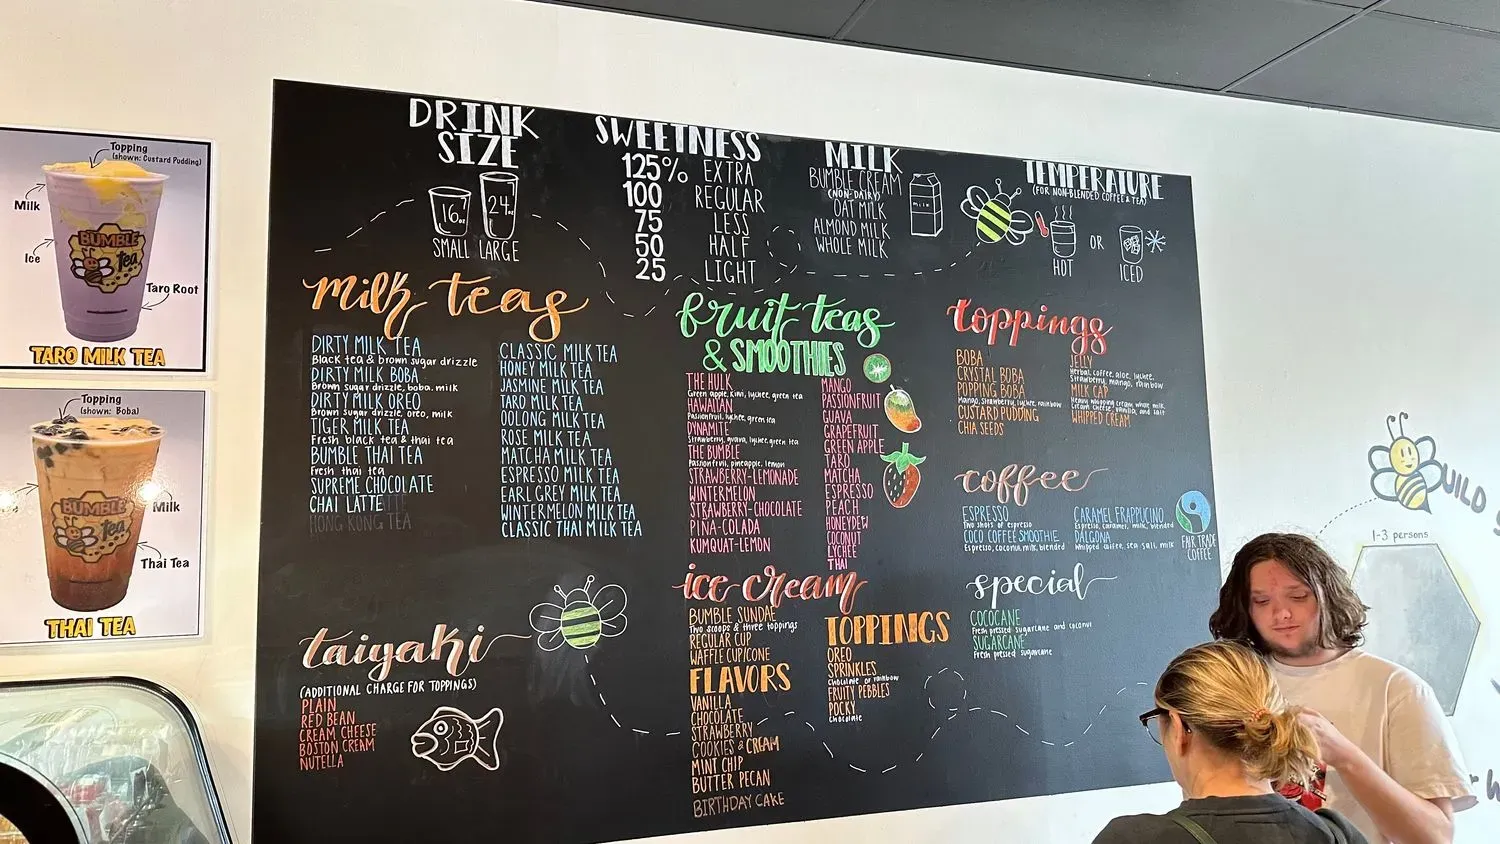 Topping
(shown: Custard Pudding)
Milk
Ice
BUMBLE
tea
Taro Root
TARO MILK TEA
Topping
(shown: Boba)
Milk
BUMBLE
tea
Thai Tea
THAI TEA
DRINK
SIZE
16oz
24oz
SMALL LARGE
SWEETNESS
125% EXTRA
100 REGULAR
75 LESS
50 HALF
25 LIGHT
MILK
BUMBLE CREAM
(NON-DAIRY)
OAT MILK
ALMOND MILK
WHOLE MILK
MILK
TEMPERATURE
(FOR NON-BLENDED COFFEE & TEA)
HOT
OR
ICED
milk teas
DIRTY MILK TEA
Black tea & brown sugar drizzle
DIRTY MILK BOBA
Brown sugar drizzle, boba, milk
DIRTY MILK OREO
Brown sugar drizzle, oreo, milk
TIGER MILK TEA
Fresh black tea & thai tea
BUMBLE THAI TEA
Fresh thai tea
SUPREME CHOCOLATE
CHAI LATTE
HONG KONG TEA
CLASSIC MILK TEA
HONEY MILK TEA
JASMINE MILK TEA
TARO MILK TEA
OOLONG MILK TEA
ROSE MILK TEA
MATCHA MILK TEA
ESPRESSO MILK TEA
EARL GREY MILK TEA
WINTERMELON MILK TEA
CLASSIC THAI MILK TEA
fruit teas
& SMOOTHIES
THE HULK
Green apple, kiwi, lychee, green tea
HAWAIIAN
Passionfruit, lychee, green tea
DYNAMITE
Strawberry, guava, lychee, green tea
THE BUMBLE
Passionfruit, pineapple, lemon
STRAWBERRY-LEMONADE
WINTERMELON
STRAWBERRY-CHOCOLATE
PIÑA-COLADA
KUMQUAT-LEMON
MANGO
PASSIONFRUIT
GUAVA
GRAPEFRUIT
GREEN APPLE
TARO
MATCHA
ESPRESSO
PEACH
HONEYDEW
COCONUT
LYCHEE
THAI
toppings
BOBA
CRYSTAL BOBA
POPPING BOBA
Mango, strawberry, lychee, rainbow
CUSTARD PUDDING
CHIA SEEDS
JELLY
Herbal, coffee, aloe, lychee,
Strawberry, mango, rainbow
MILK CAP
Heavy whipping cream, whole milk,
Cream cheese, vanilla, and salt
WHIPPED CREAM
coffee
ESPRESSO
Two shots of espresso
COCO COFFEE SMOOTHIE
Espresso, coconut, milk, blended
CARAMEL FRAPPUCINO
Espresso, caramel, milk, blended
DALGONA
Whipped coffee, sea salt, milk
FAIR TRADE
COFFEE
special
COCOCANE
Fresh pressed sugarcane and coconut
SUGARCANE
Fresh pressed sugarcane
taiyaki
(ADDITIONAL CHARGE FOR TOPPINGS)
PLAIN
RED BEAN
CREAM CHEESE
BOSTON CREAM
NUTELLA
ice cream
BUMBLE SUNDAE
Two scoops & three toppings
REGULAR CUP
WAFFLE CUP/CONE
FLAVORS
VANILLA
CHOCOLATE
STRAWBERRY
COOKIES & CREAM
MINT CHIP
BUTTER PECAN
BIRTHDAY CAKE
TOPPINGS
OREO
SPRINKLES
Chocolate or rainbow
FRUITY PEBBLES
POCKY
Chocolate
UILD
1-3 persons